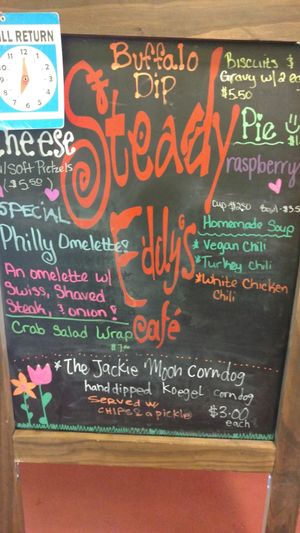 LL RETURN
12 1 2 3 4 5 6 7 8 9 10 11
Buffalo
Dip
Steady
Eddy's
café
Biscuits &
Gravy w/2 eg
$5.50
Pie
raspberry
cheese
w/soft Pretzels
($5.50)
SPECIAL
Philly Omelette!
An omelette w/
Swiss, Shaved
Steak, & onion!
Crab Salad Wrap
Cup $2.50 Bowl $3.5
Homemade Soup
* Vegan Chili
* Turkey Chili
* White Chicken
Chili
*The Jackie Moon Corndog
hand dipped Koegel corndog
SERVED W/
CHIPS & a pickle
$3.00
each